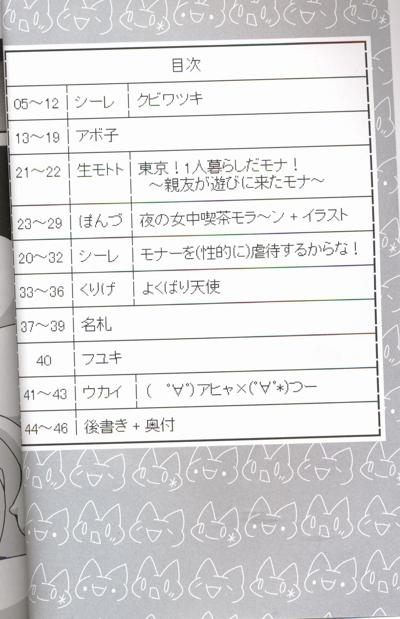 目次
05～12 シーレ クビワツキ
13～19 アボ子
21～22 生モトト 東京！1人暮らしだモナ！
～親友が遊びに来たモナ～
23～29 ほんづ 夜の女中喫茶モラ～ン + イラスト
20～32 シーレ モナーを(性的に)虐待するからな！
33～36 くりげ よくばり天使
37～39 名札
40 フユキ
41～43 ウカイ ( ﾟ∀ﾟ)アヒャ×(ﾟ∀ﾟ*)つー
44～46 後書き + 奥付